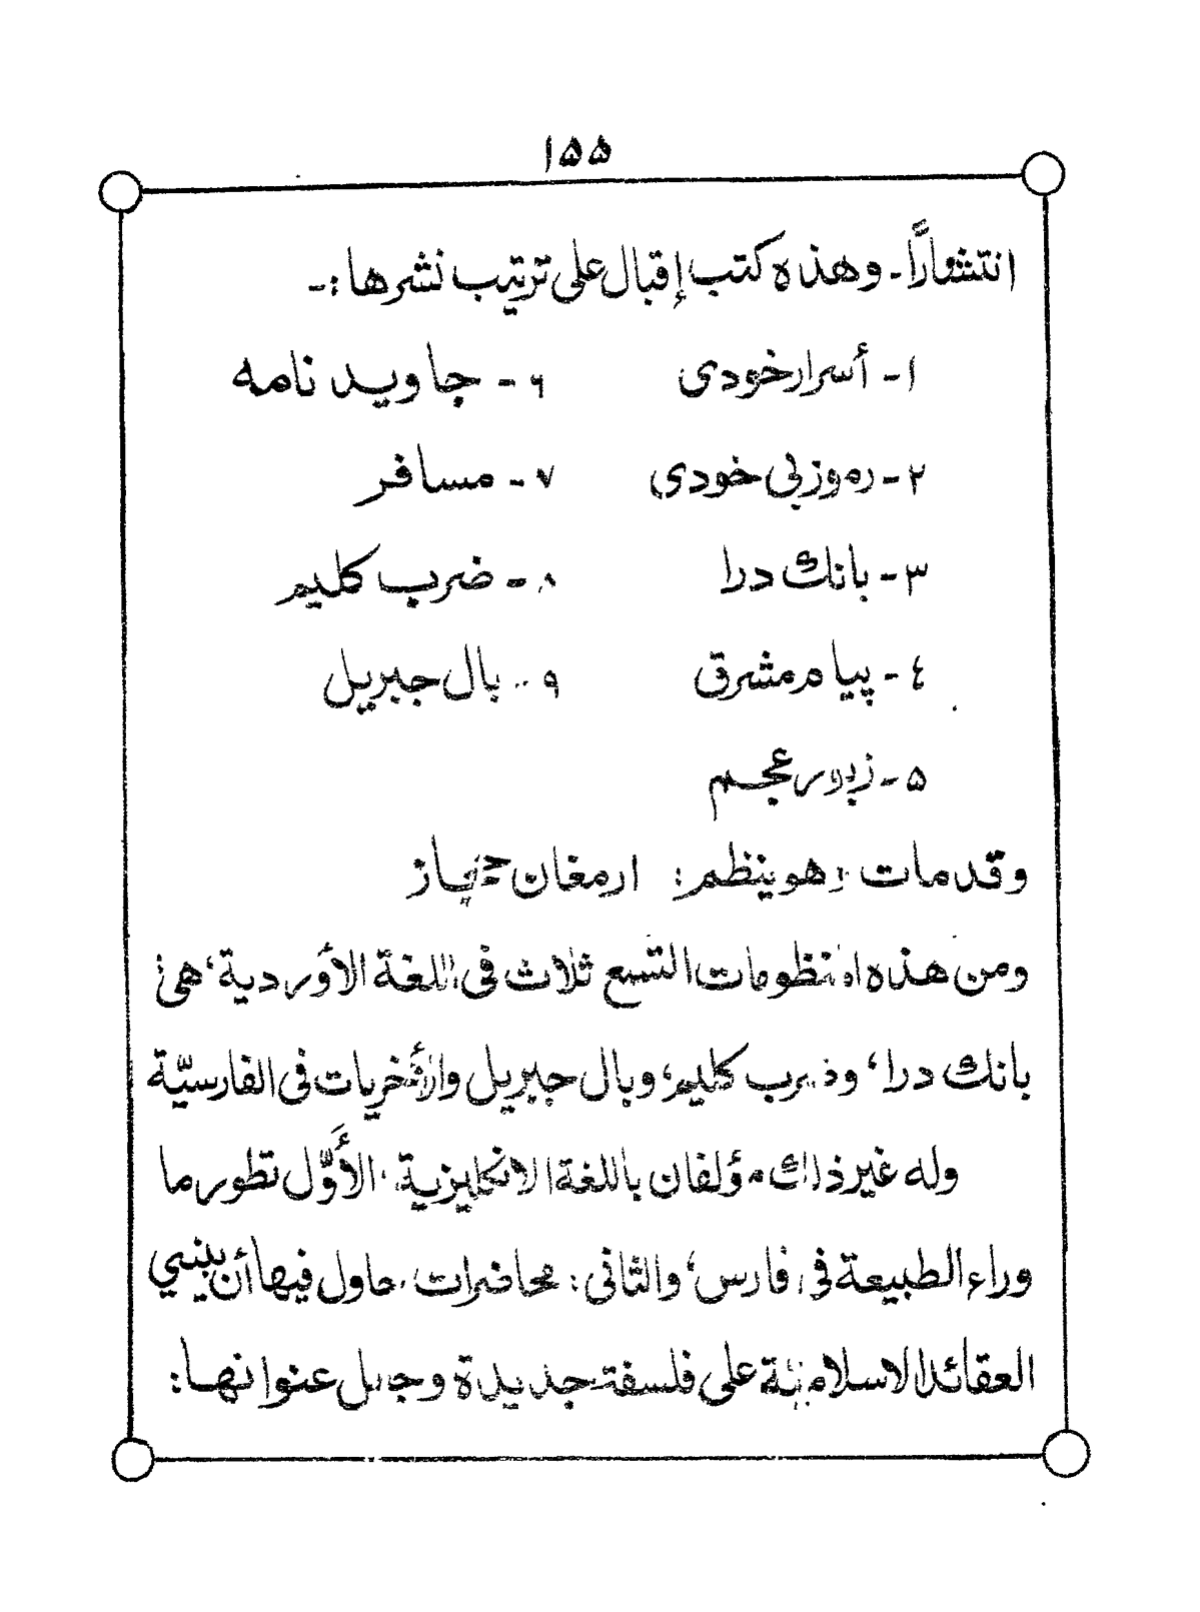 ١٥٥
انتشارًا - وهذه كتب إقبال على ترتيب نشرها :-
١ - أسرار خودى ٦ - جاويد نامه
٢ - رموز بى خودى ٧ - مسافر
٣ - بانك درا ٨ - ضرب كليم
٤ - پيام مشرق ٩ - بال جبريل
٥ - زبور عجم
وقد مات وهو ينظم : ارمغان حجاز
ومن هذه المنظومات التسع ثلاث فى اللغة الأوردية، هى
بانك درا، وضرب كليم، وبال جبريل والأخريات فى الفارسيّة
وله غير ذلك مؤلفان باللغة الانكليزية. الأَوَّل تطور ما
وراء الطبيعة فى فارس، والثانى : محاضرات حاول فيها أن يبنى
العقائد الاسلامية على فلسفة جديدة وجعل عنوانها :